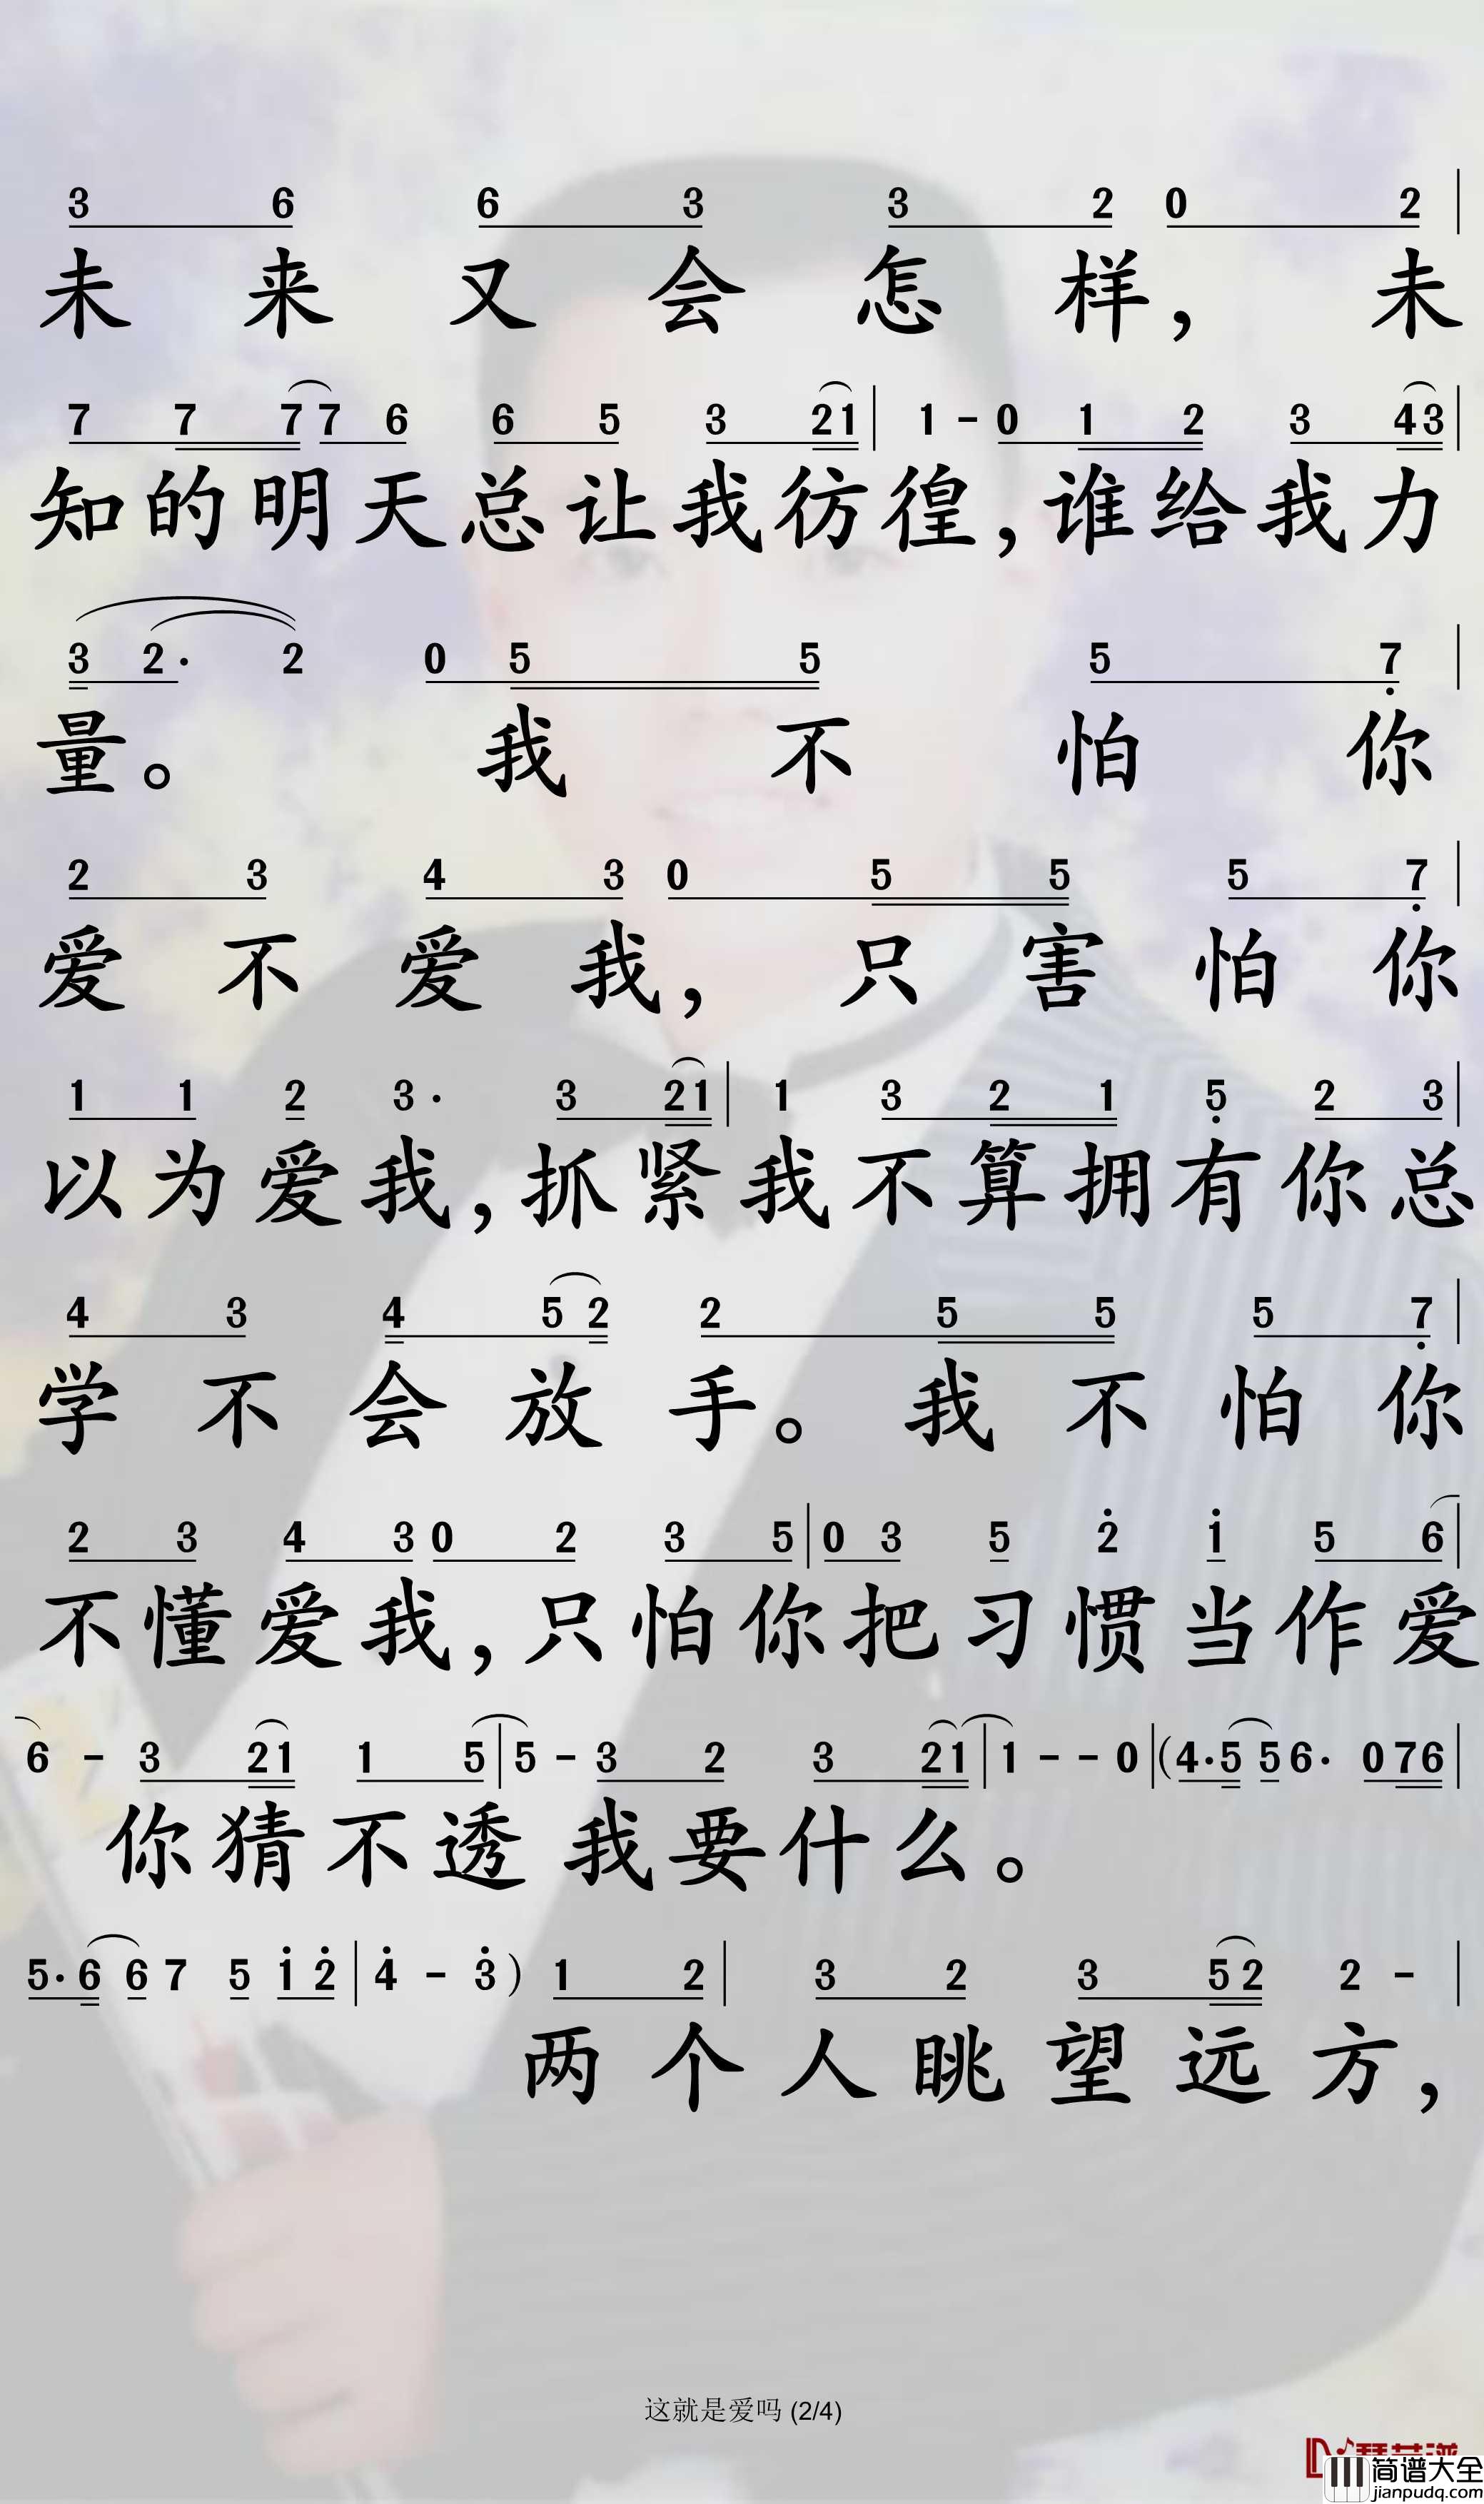 3 6 6 3 3 2 0 2 |
未来又会怎样，未
7 7 7 7 6 6 5 3 2 1 | 1 - 0 1 2 3 4 3 |
知的明天总让我彷徨，谁给我力
3 2· 2 0 5 5 5 7̣ |
量。我不怕你
2 3 4 3 0 5 5 5 7̣ |
爱不爱我，只害怕你
1 1 2 3· 3 2 1 | 1 3 2 1 5̣ 2 3 |
以为爱我，抓紧我不算拥有你总
4 3 4 5 2 2 5 5 5 7̣ |
学不会放手。我不怕你
2 3 4 3 0 2 3 5 | 0 3 5 2̇ 1̇ 5 6 |
不懂爱我，只怕你把习惯当作爱
6 - 3 2 1 1 5 | 5 - 3 2 3 2 1 | 1 - - 0 | (4· 5 5 6· 0 7 6 |
你猜不透我要什么。
5· 6 6 7 5 1̇ 2̇ | 4̇ - 3̇ ) 1 2 | 3 2 3 5 2 2 - |
两个人眺望远方，
这就是爱吗 (2/4)
简谱大全
jianpudq.com